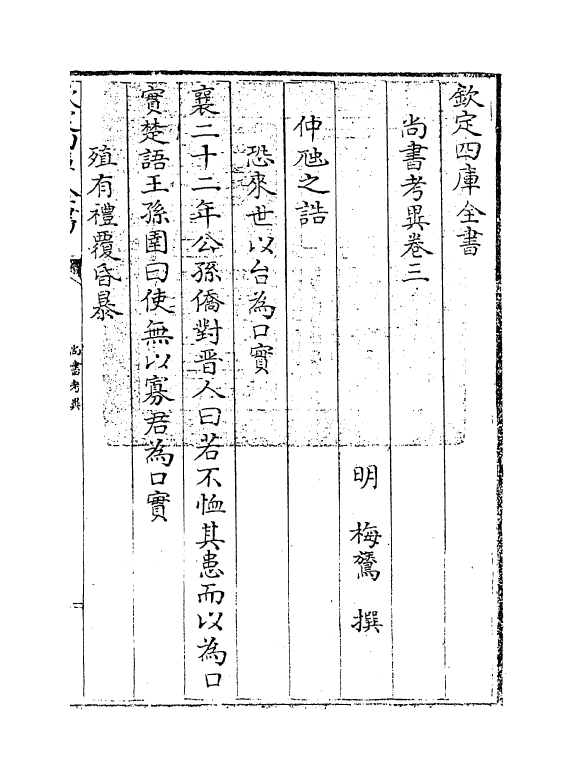 欽定四庫全書
尚書考異卷三
明　梅鷟　撰
仲虺之誥
恐來世以台為口實
襄二十二年公孫僑對晉人曰若不恤其患而以為口
實楚語王孫圉曰使無以寡君為口實
殖有禮覆昏暴
尚書考異